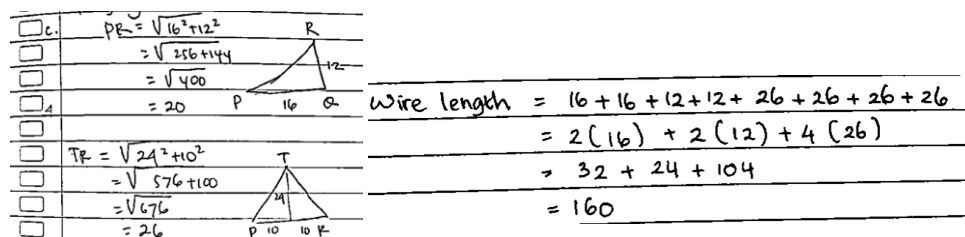 c. PR = √16²+12²
= √256+144
= √400
= 20
R
12
P 16 Q
TR = √24²+10²
= √576+100
= √676
= 26
T
24
P 10 10 R
Wire length = 16 + 16 + 12 + 12 + 26 + 26 + 26 + 26
= 2(16) + 2(12) + 4(26)
= 32 + 24 + 104
= 160